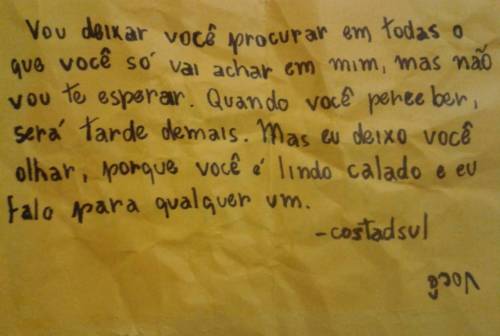 Vou deixar você procurar em todas o
que você só vai achar em mim, mas não
vou te esperar. Quando você perceber,
será tarde demais. Mas eu deixo você
olhar, porque você é lindo calado e eu
falo para qualquer um.
-costadsul
Você